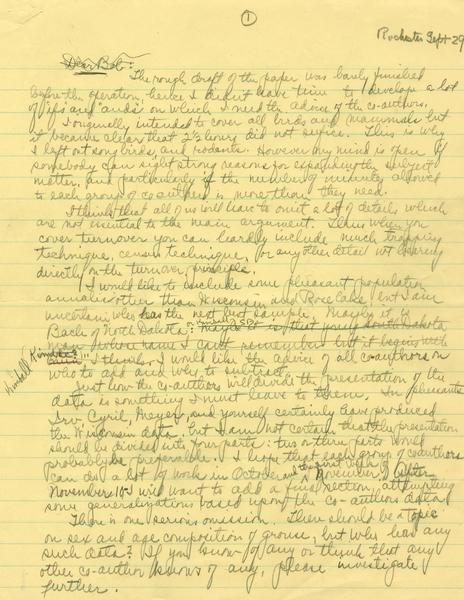 ①
Rochester Sept 29
Dear Bob:
The rough draft of the paper was barely finished
before the operation, hence I didn't have time to develop a lot
of "ifs and ands" on which I need the advice of the co-authors.
I originally intended to cover all birds and mammals but
it became clear that 2½ hours did not suffice. This is why
I left out song birds, and rodents. However my mind is open if
somebody can sight strong reasons for expanding the subject
matter, and particularly if the number of minutes allowed
to each group of co-authors is more than they need.
I think that all of us will have to omit a lot of details which
are not essential to the main argument. Thus when you
cover turnover you can hardly include much trapping
technique, census technique, or any other detail not bearing
directly on the turnover principle.
I would like to include some pheasant population
annals other than Wisconsin and Rose Lake, but I am
uncertain who has the next best sample. Maybe it is
Bach of North Dakota: maybe it is that young South Dakota
man whose name I can't remember but it begins with
Kimball "Kimball" I think. I would like the advice of all co-authors on
who to add and why to subtract.
Just how the co-authors will divide the presentation of the
data is something I must leave to them. In pheasants
Irv, Cyril, Meyer, and yourself certainly have produced
the Wisconsin data, but I am not certain that the presentation
should be divided into four parts: two or three parts would
probably be preferable. I hope that each group of co-authors
can do a lot of work in October and November. After
November 10 I will want to add a final section, attempting
some generalizations based upon the co-authors data.
There is one serious omission. There should be a topic
on sex and age composition of grouse, but who has any
such data? If you know of any or think that any
other co-author knows of any, please investigate
further.